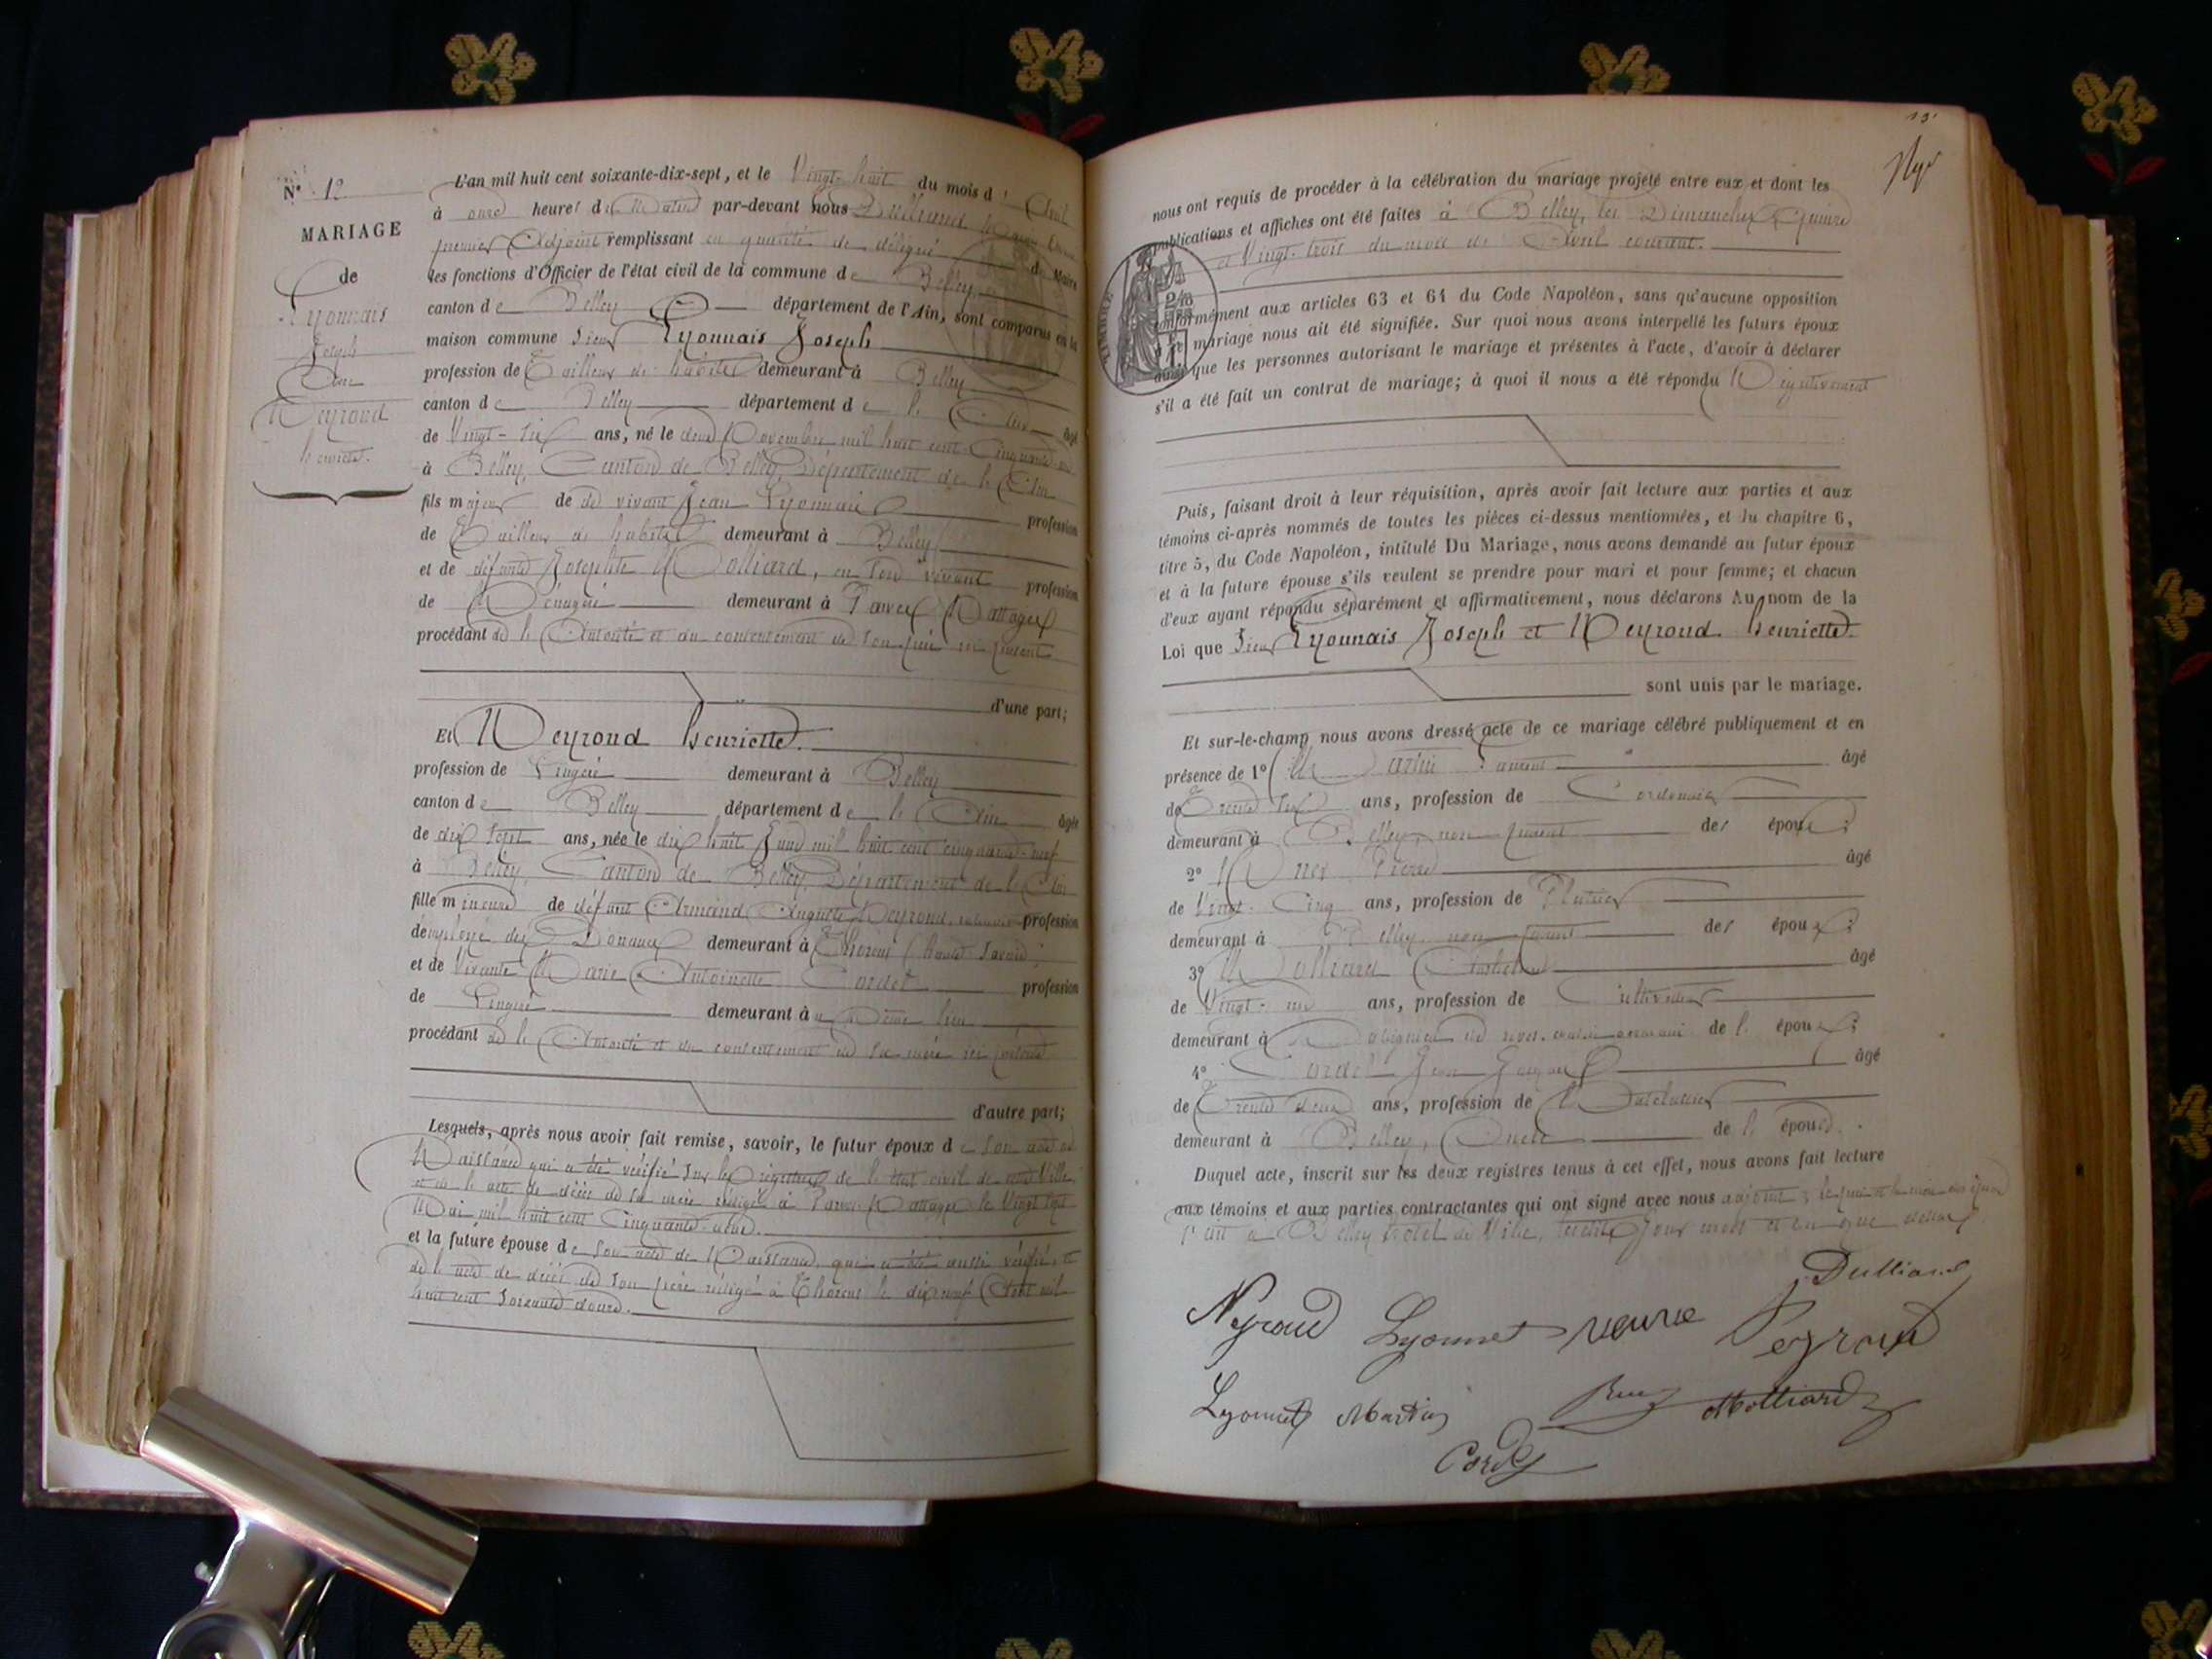 N° 12
MARIAGE
de
Lyonnais
Joseph
Avec
Neyroud
henriette.
L'an mil huit cent soixante-dix-sept, et le Vingt-huit du mois d'Avril
à onze heures du Matin par-devant nous
premier Adjoint remplissant en qualité de délégué de Maire
les fonctions d'Officier de l'état civil de la commune de Belley,
canton de Belley département de l'Ain, sont comparus en la
maison commune Sieur Lyonnais Joseph
profession de Tailleur de habits demeurant à Belley
canton de Belley département de l'Ain âgé
de Vingt-six ans, né le Novembre mil huit cent Cinquante
à Belley, Canton de Belley, Département de l'Ain
fils majeur de vivant Jean Lyonnais profession
de Tailleur de habits demeurant à Belley
et de défunte Josephte Molliard, en son vivant profession
de Ménagère demeurant à Parves Nattages
procédant de l'Autorité et du consentement de son père ici présent
d'une part;
Et Neyroud henriette.
profession de Lingère demeurant à Belley
canton de Belley département de l'Ain âgée
de dix sept ans, née le dix huit mil huit cent cinquante-neuf
à Belley, Canton de Belley, Département de l'Ain
fille mineure de défunt Armand Auguste Neyroud, profession
d'employé des Douanes demeurant à Thorens (haute Savoie)
et de vivante Marie Antoinette Cordet profession
de Lingère demeurant au Même lieu
procédant de l'Autorité et du consentement de sa mère ici présente
d'autre part;
Lesquels, après nous avoir fait remise, savoir, le futur époux de son acte de
Naissance qui a été vérifié sur les registres de l'état civil de cette Ville,
et de l'acte de décès de sa mère rédigé à Parves Nattages le Vingt sept
Mai mil huit cent Cinquante
et la future épouse de son acte de Naissance, qui a été aussi vérifié, et
de l'acte de décès de son père rédigé à Thorens le dix neuf Août mil
huit cent soixante douze.
nous ont requis de procéder à la célébration du mariage projeté entre eux et dont les
publications et affiches ont été faites à Belley, les Dimanches Quinze
et Vingt-trois du mois de Avril courant.
conformément aux articles 63 et 64 du Code Napoléon, sans qu'aucune opposition
mariage nous ait été signifiée. Sur quoi nous avons interpellé les futurs époux
ainsi que les personnes autorisant le mariage et présentes à l'acte, d'avoir à déclarer
s'il a été fait un contrat de mariage; à quoi il nous a été répondu Négativement
Puis, faisant droit à leur réquisition, après avoir fait lecture aux parties et aux
témoins ci-après nommés de toutes les pièces ci-dessus mentionnées, et du chapitre 6,
titre 5, du Code Napoléon, intitulé Du Mariage, nous avons demandé au futur époux
et à la future épouse s'ils veulent se prendre pour mari et pour femme; et chacun
d'eux ayant répondu séparément et affirmativement, nous déclarons Au nom de la
Loi que Sieur Lyonnais Joseph et Neyroud henriette.
sont unis par le mariage.
Et sur-le-champ nous avons dressé acte de ce mariage célébré publiquement et en
présence de 1° Martin âgé
de Trente six ans, profession de Cordonnier
demeurant à Belley, non parent des époux;
2° Pierre âgé
de Vingt-Cinq ans, profession de Platrier
demeurant à Belley non parent des époux;
3° Molliard Anthelme âgé
de Vingt- ans, profession de Cultivateur
demeurant à cousin germain de l'époux;
4° Cordet Jean Jacques âgé
de Trente deux ans, profession de Matelassier
demeurant à Belley, Oncle de l'épouse.
Duquel acte, inscrit sur les deux registres tenus à cet effet, nous avons fait lecture
aux témoins et aux parties contractantes qui ont signé avec nous adjoint
Fait à Belley hotel de Ville, lesdits Jour mois et an que dessus
Dulliand
Neyroud Lyonnet veuve Peyroud
Lyonnet Martin Molliard
Cordet